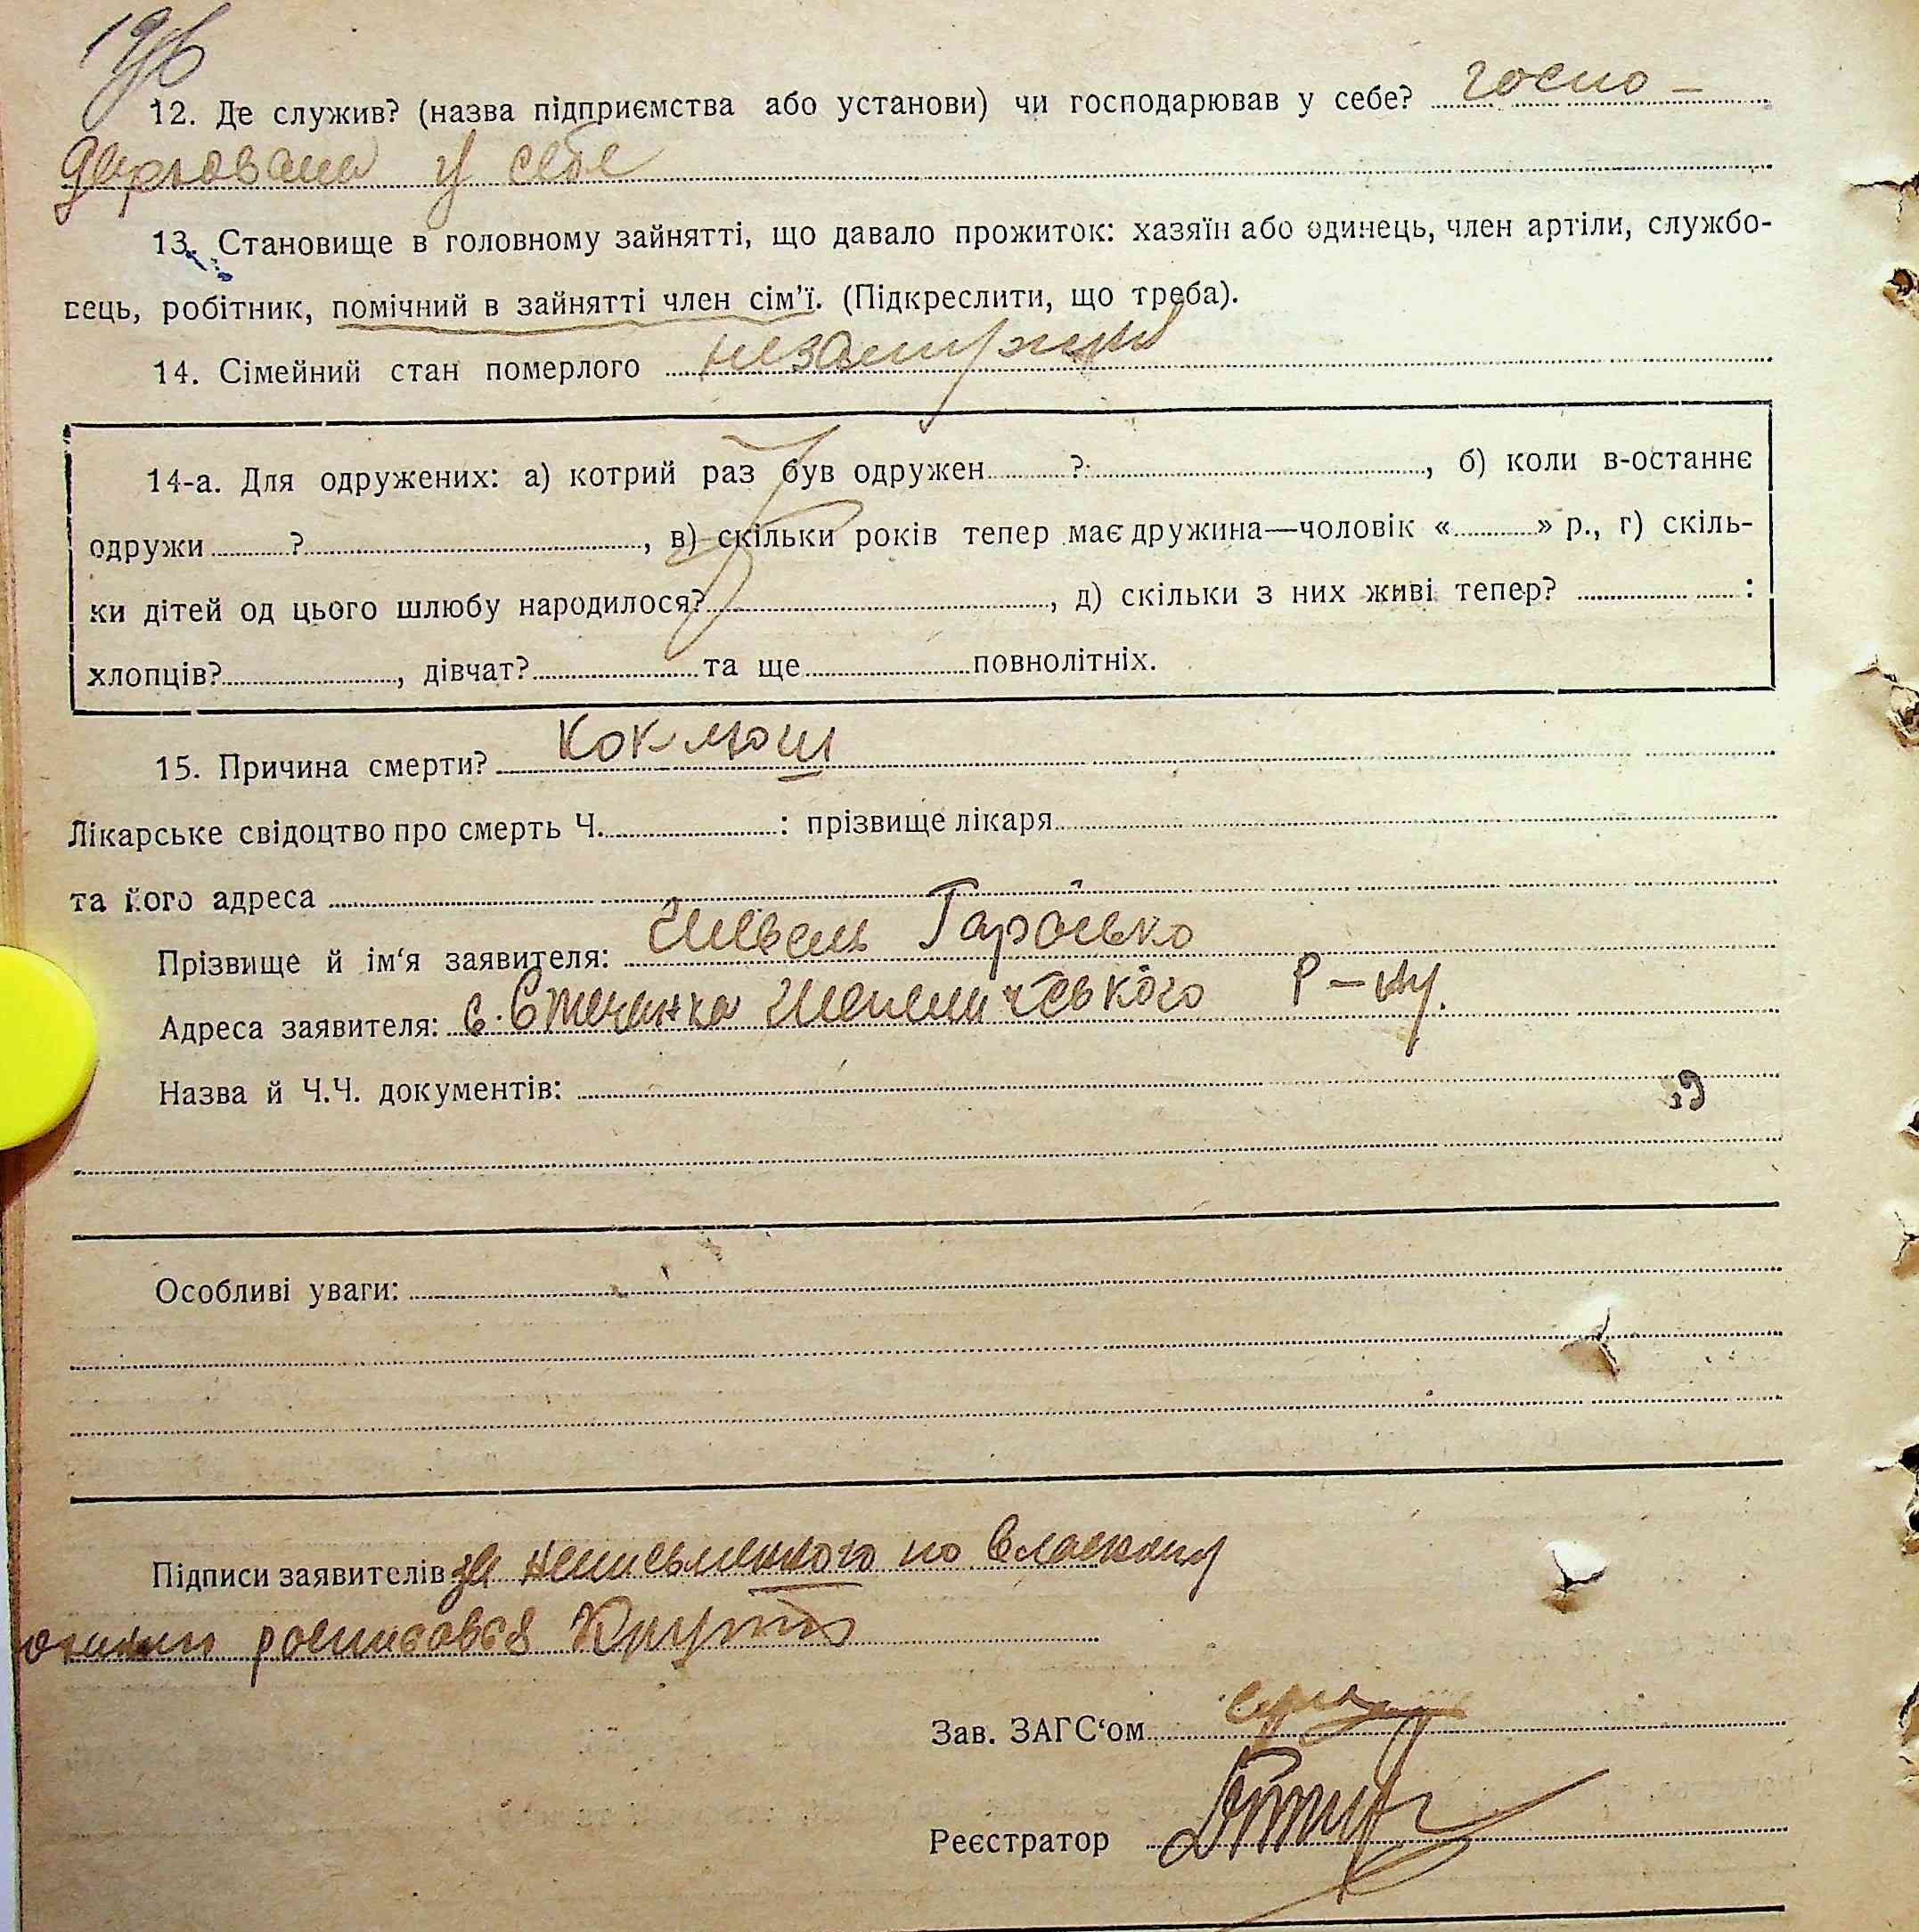 12. Де служив? (назва підприємства або установи) чи господарював у себе? госпо-
дарювала у себе
13. Становище в головному зайнятті, що давало прожиток: хазяїн або одинець, член артіли, службо-
вець, робітник, помічний в зайнятті член сім'ї. (Підкреслити, що треба).
14. Сімейний стан померлого незамужня
14-а. Для одружених: а) котрий раз був одружен ? , б) коли в-останнє
одружи ? , в) скільки років тепер має дружина—чоловік « » р., г) скіль-
ки дітей од цього шлюбу народилося? , д) скільки з них живі тепер? :
хлопців? , дівчат? та ще повнолітніх.
15. Причина смерти? Коклюш
Лікарське свідоцтво про смерть Ч. : прізвище лікаря
та його адреса
Прізвище й ім'я заявителя: Швець Гарасько
Адреса заявителя: с. Стечанка Шепелицького Р-ну.
Назва й Ч.Ч. документів:
Особливі уваги:
Підписи заявителів за неписьменного по власному
росписався
Зав. ЗАГС'ом
Реєстратор